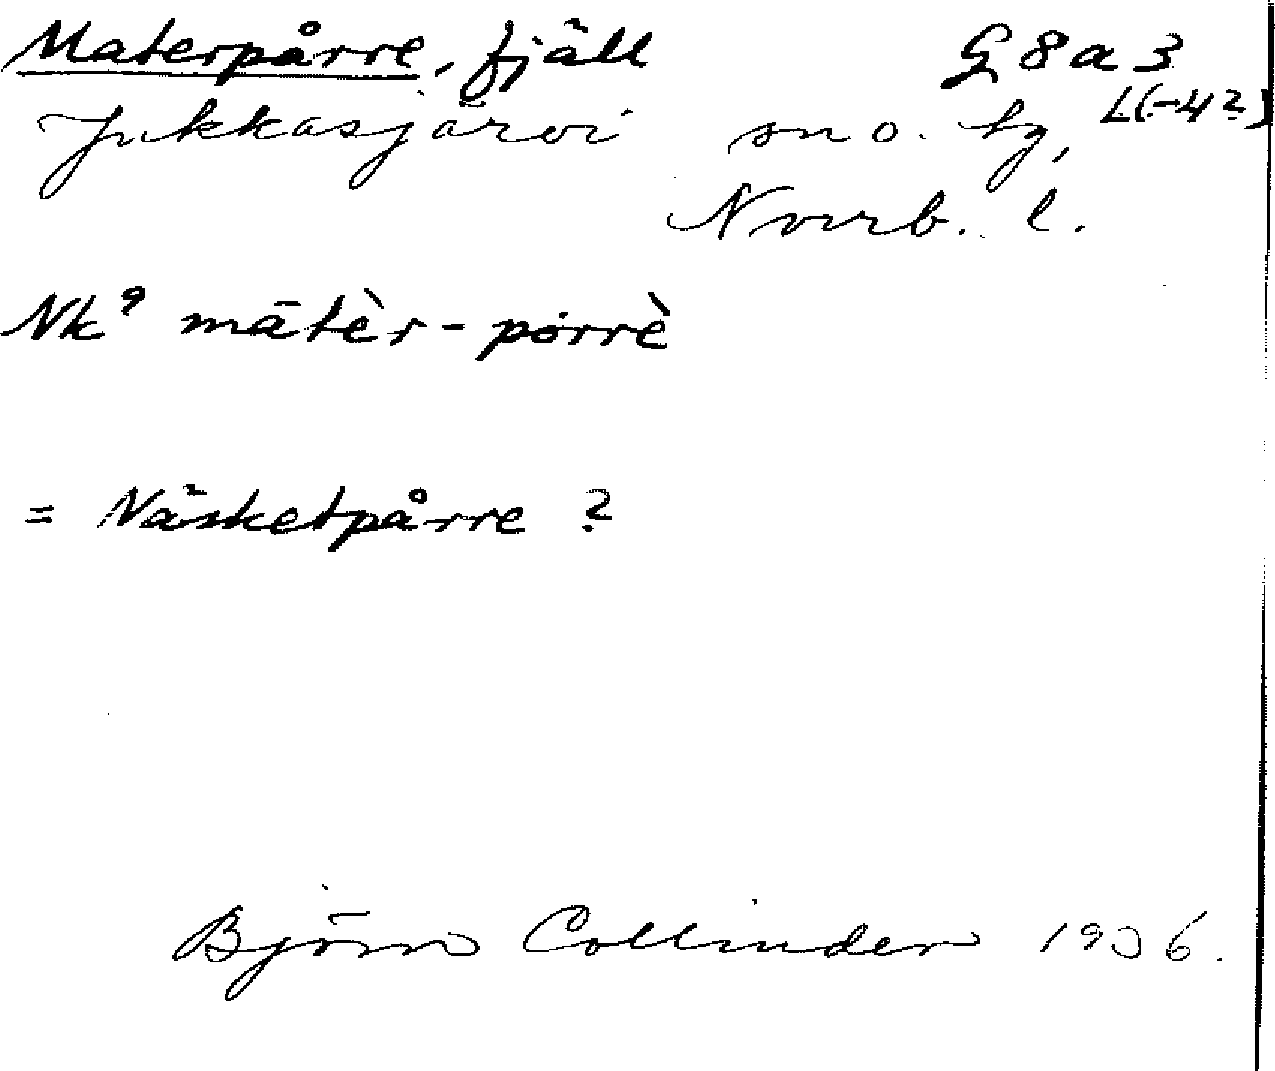 Materpårre, fjäll G 8 a 3
Jukkasjärvi sn o. tg, L(-4?)
Norrb. l.
Nk⁹ mātèr-pȯrrè
= Näsketpårre ?
Björn Collinder 1936.